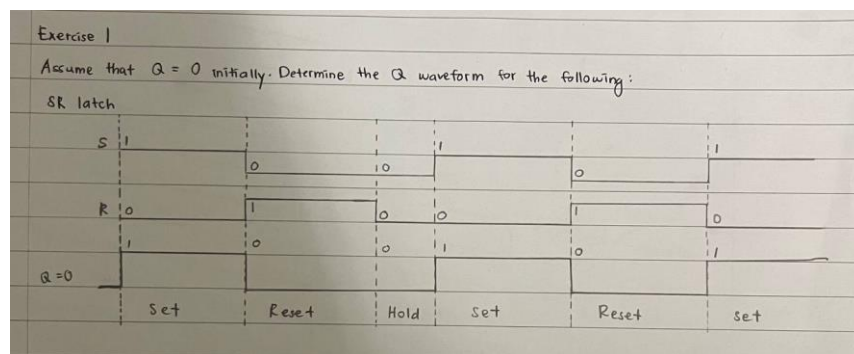 Exercise 1
Assume that Q = 0 initially. Determine the Q waveform for the following:
SR latch
S 1 0 0 1 0 1
R 0 1 0 0 1 0
1 0 0 1 0 1
Q=0
Set Reset Hold Set Reset Set